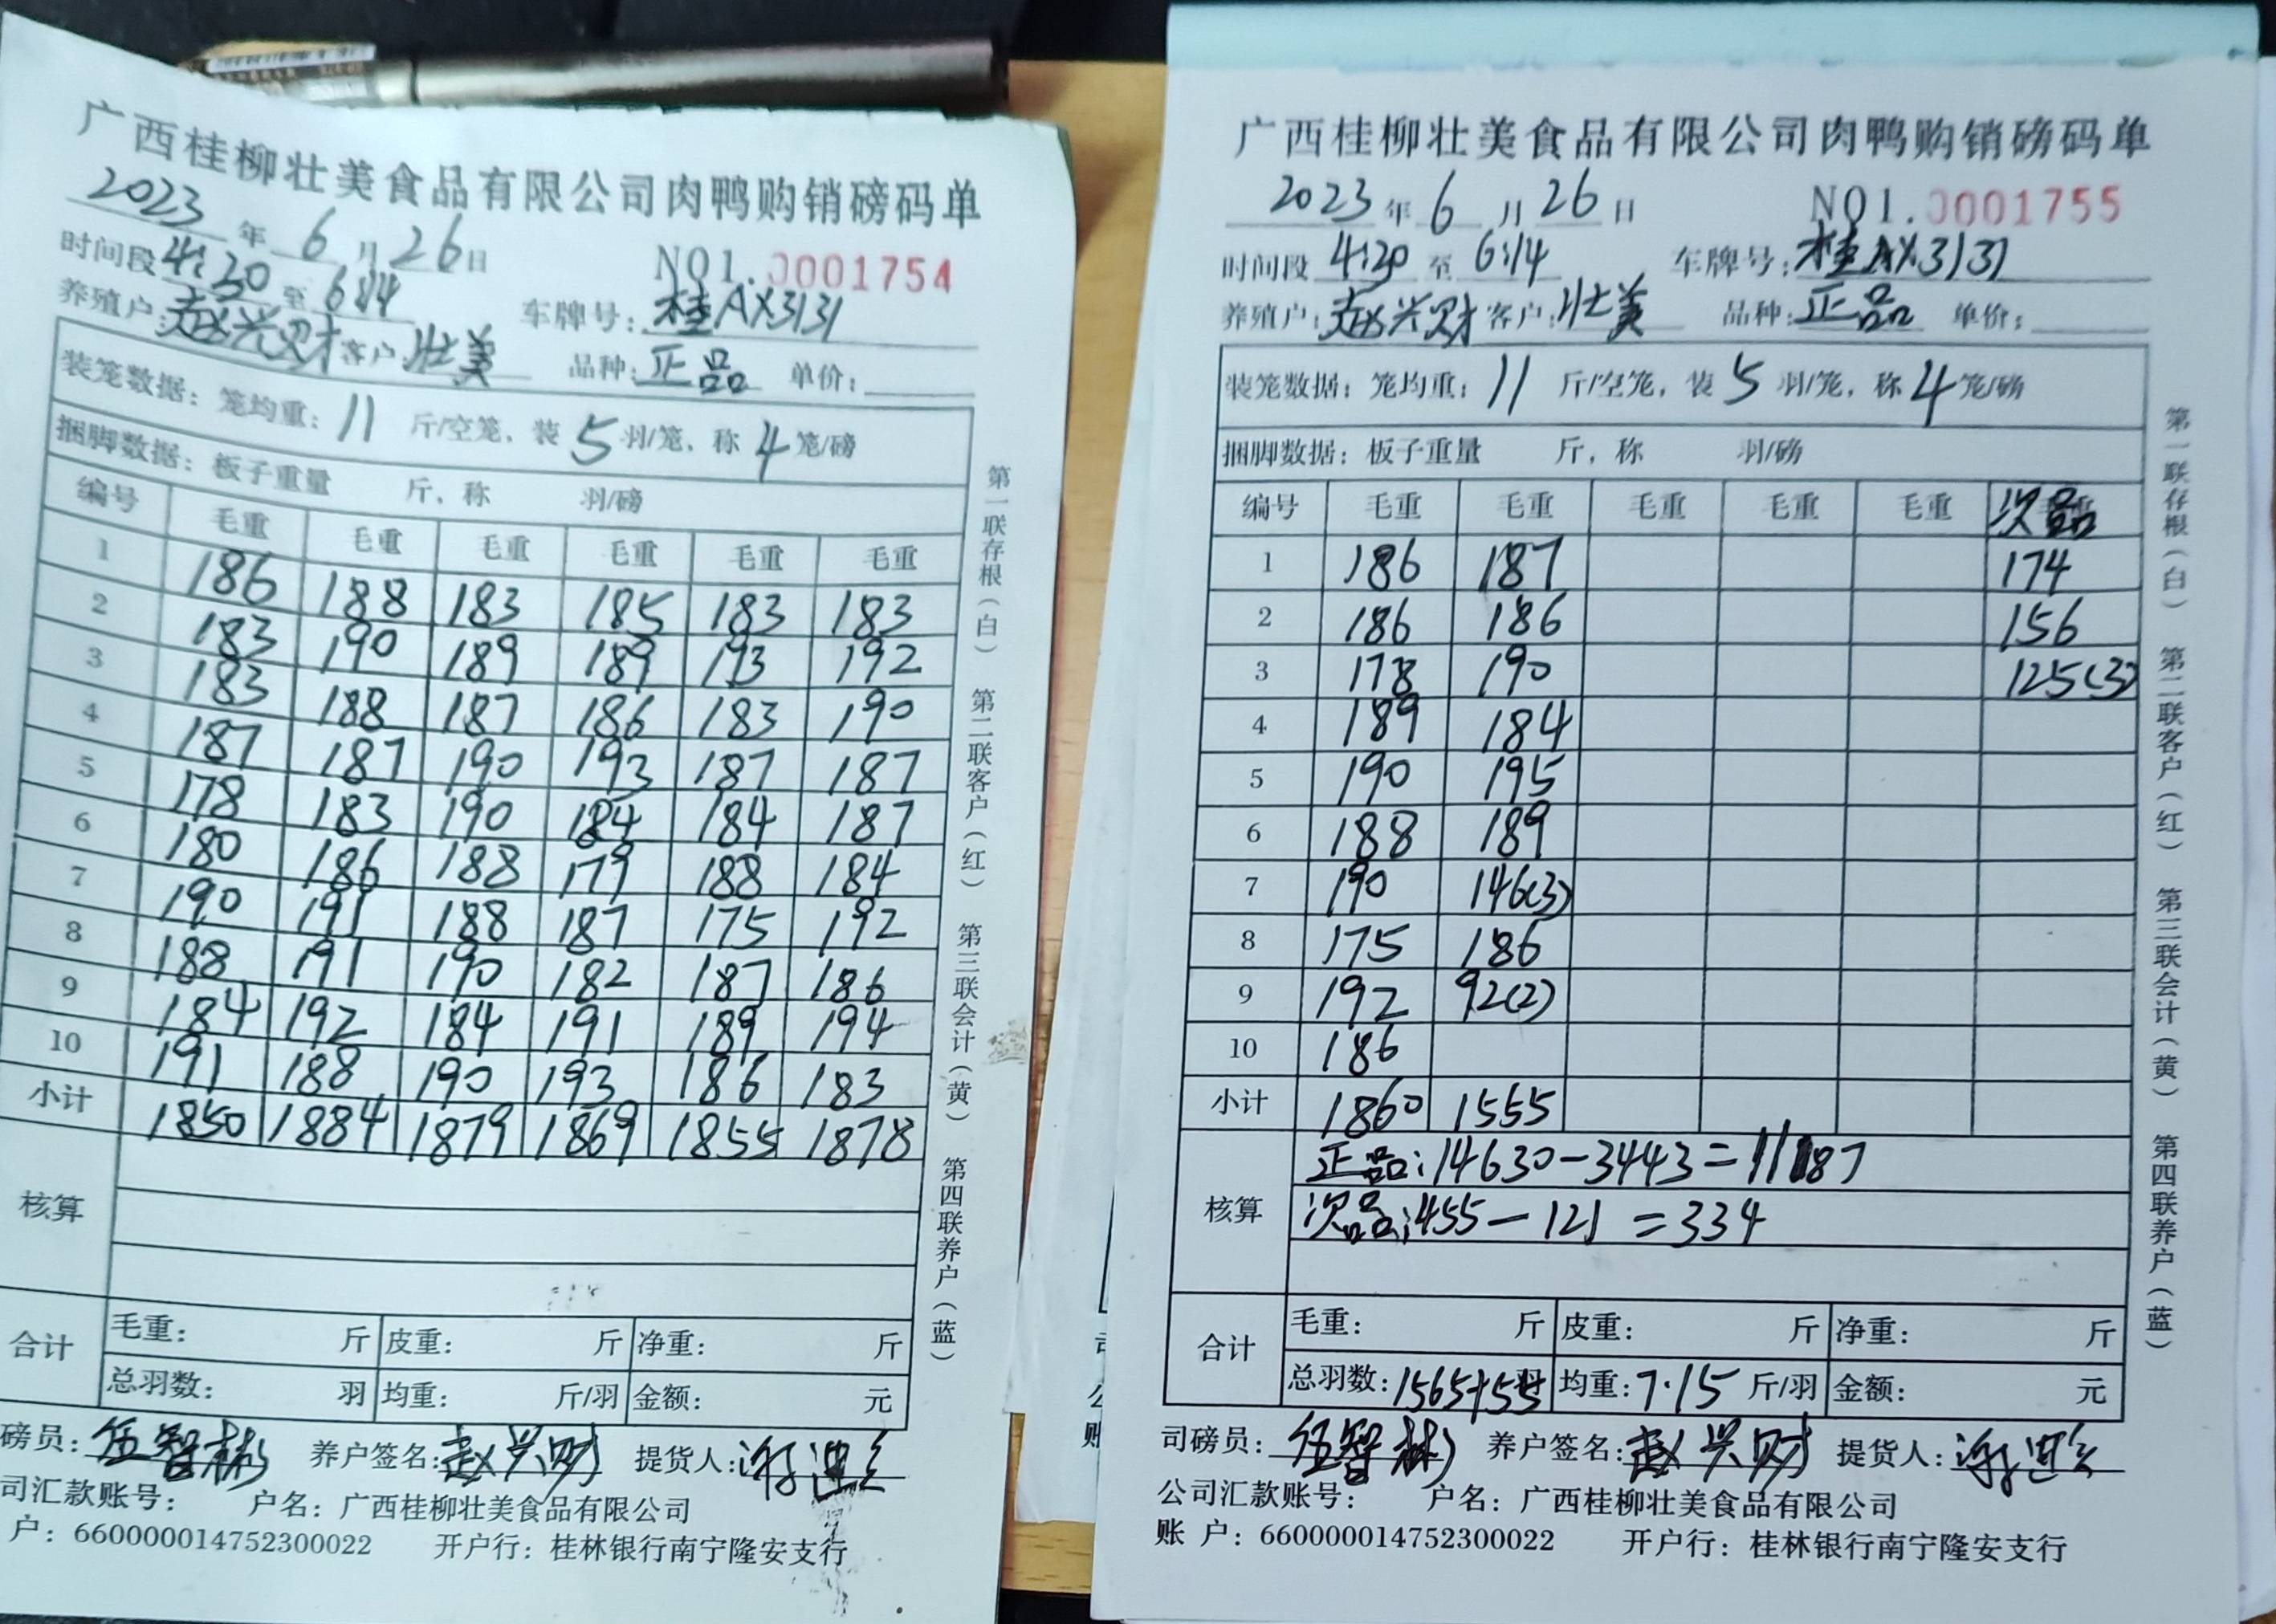 广西桂柳壮美食品有限公司肉鸭购销磅码单
2023 年 6 月 26 日
NO1.0001754
时间段 4:20 至 6:14 车牌号: 桂AX3131
养殖户: 赵兴财 客户: 壮美 品种: 正品 单价:
装笼数据: 笼均重: 11 斤/空笼, 装 5 羽/笼, 称 4 笼/磅
捆脚数据: 板子重量 斤, 称 羽/磅
编号 毛重 毛重 毛重 毛重 毛重 毛重
1 186 188 183 185 183 183
2 183 190 189 189 193 192
3 183 188 187 186 183 190
4 187 187 190 193 187 187
5 178 183 190 184 184 187
6 180 186 188 179 188 184
7 190 191 188 187 175 192
8 188 191 190 182 187 186
9 184 192 184 191 189 194
10 191 188 190 193 186 183
小计 1850 1884 1879 1869 1855 1878
核算
合计 毛重: 斤 皮重: 斤 净重: 斤
总羽数: 羽 均重: 斤/羽 金额: 元
磅员: 伍智彬 养户签名: 赵兴财 提货人:
司汇款账号: 户名: 广西桂柳壮美食品有限公司
户: 660000014752300022 开户行: 桂林银行南宁隆安支行
第一联存根(白) 第二联客户(红) 第三联会计(黄) 第四联养户(蓝)
广西桂柳壮美食品有限公司肉鸭购销磅码单
2023 年 6 月 26 日 NO1.0001755
时间段 4:20 至 6:14 车牌号: 桂AX3131
养殖户: 赵兴财 客户: 壮美 品种: 正品 单价:
装笼数据: 笼均重: 11 斤/空笼, 装 5 羽/笼, 称 4 笼/磅
捆脚数据: 板子重量 斤, 称 羽/磅
编号 毛重 毛重 毛重 毛重 毛重 次品
1 186 187 174
2 186 186 156
3 178 190 125(3)
4 189 184
5 190 195
6 188 189
7 190 146(3)
8 175 186
9 192 92(2)
10 186
小计 1860 1555
核算 正品:14630-3443=11187
次品:455-121=334
合计 毛重: 斤 皮重: 斤 净重: 斤
总羽数: 1565+55 羽 均重: 7.15 斤/羽 金额: 元
司磅员: 伍智彬 养户签名: 赵兴财 提货人:
公司汇款账号: 户名: 广西桂柳壮美食品有限公司
账 户: 660000014752300022 开户行: 桂林银行南宁隆安支行
第一联存根(白) 第二联客户(红) 第三联会计(黄) 第四联养户(蓝)